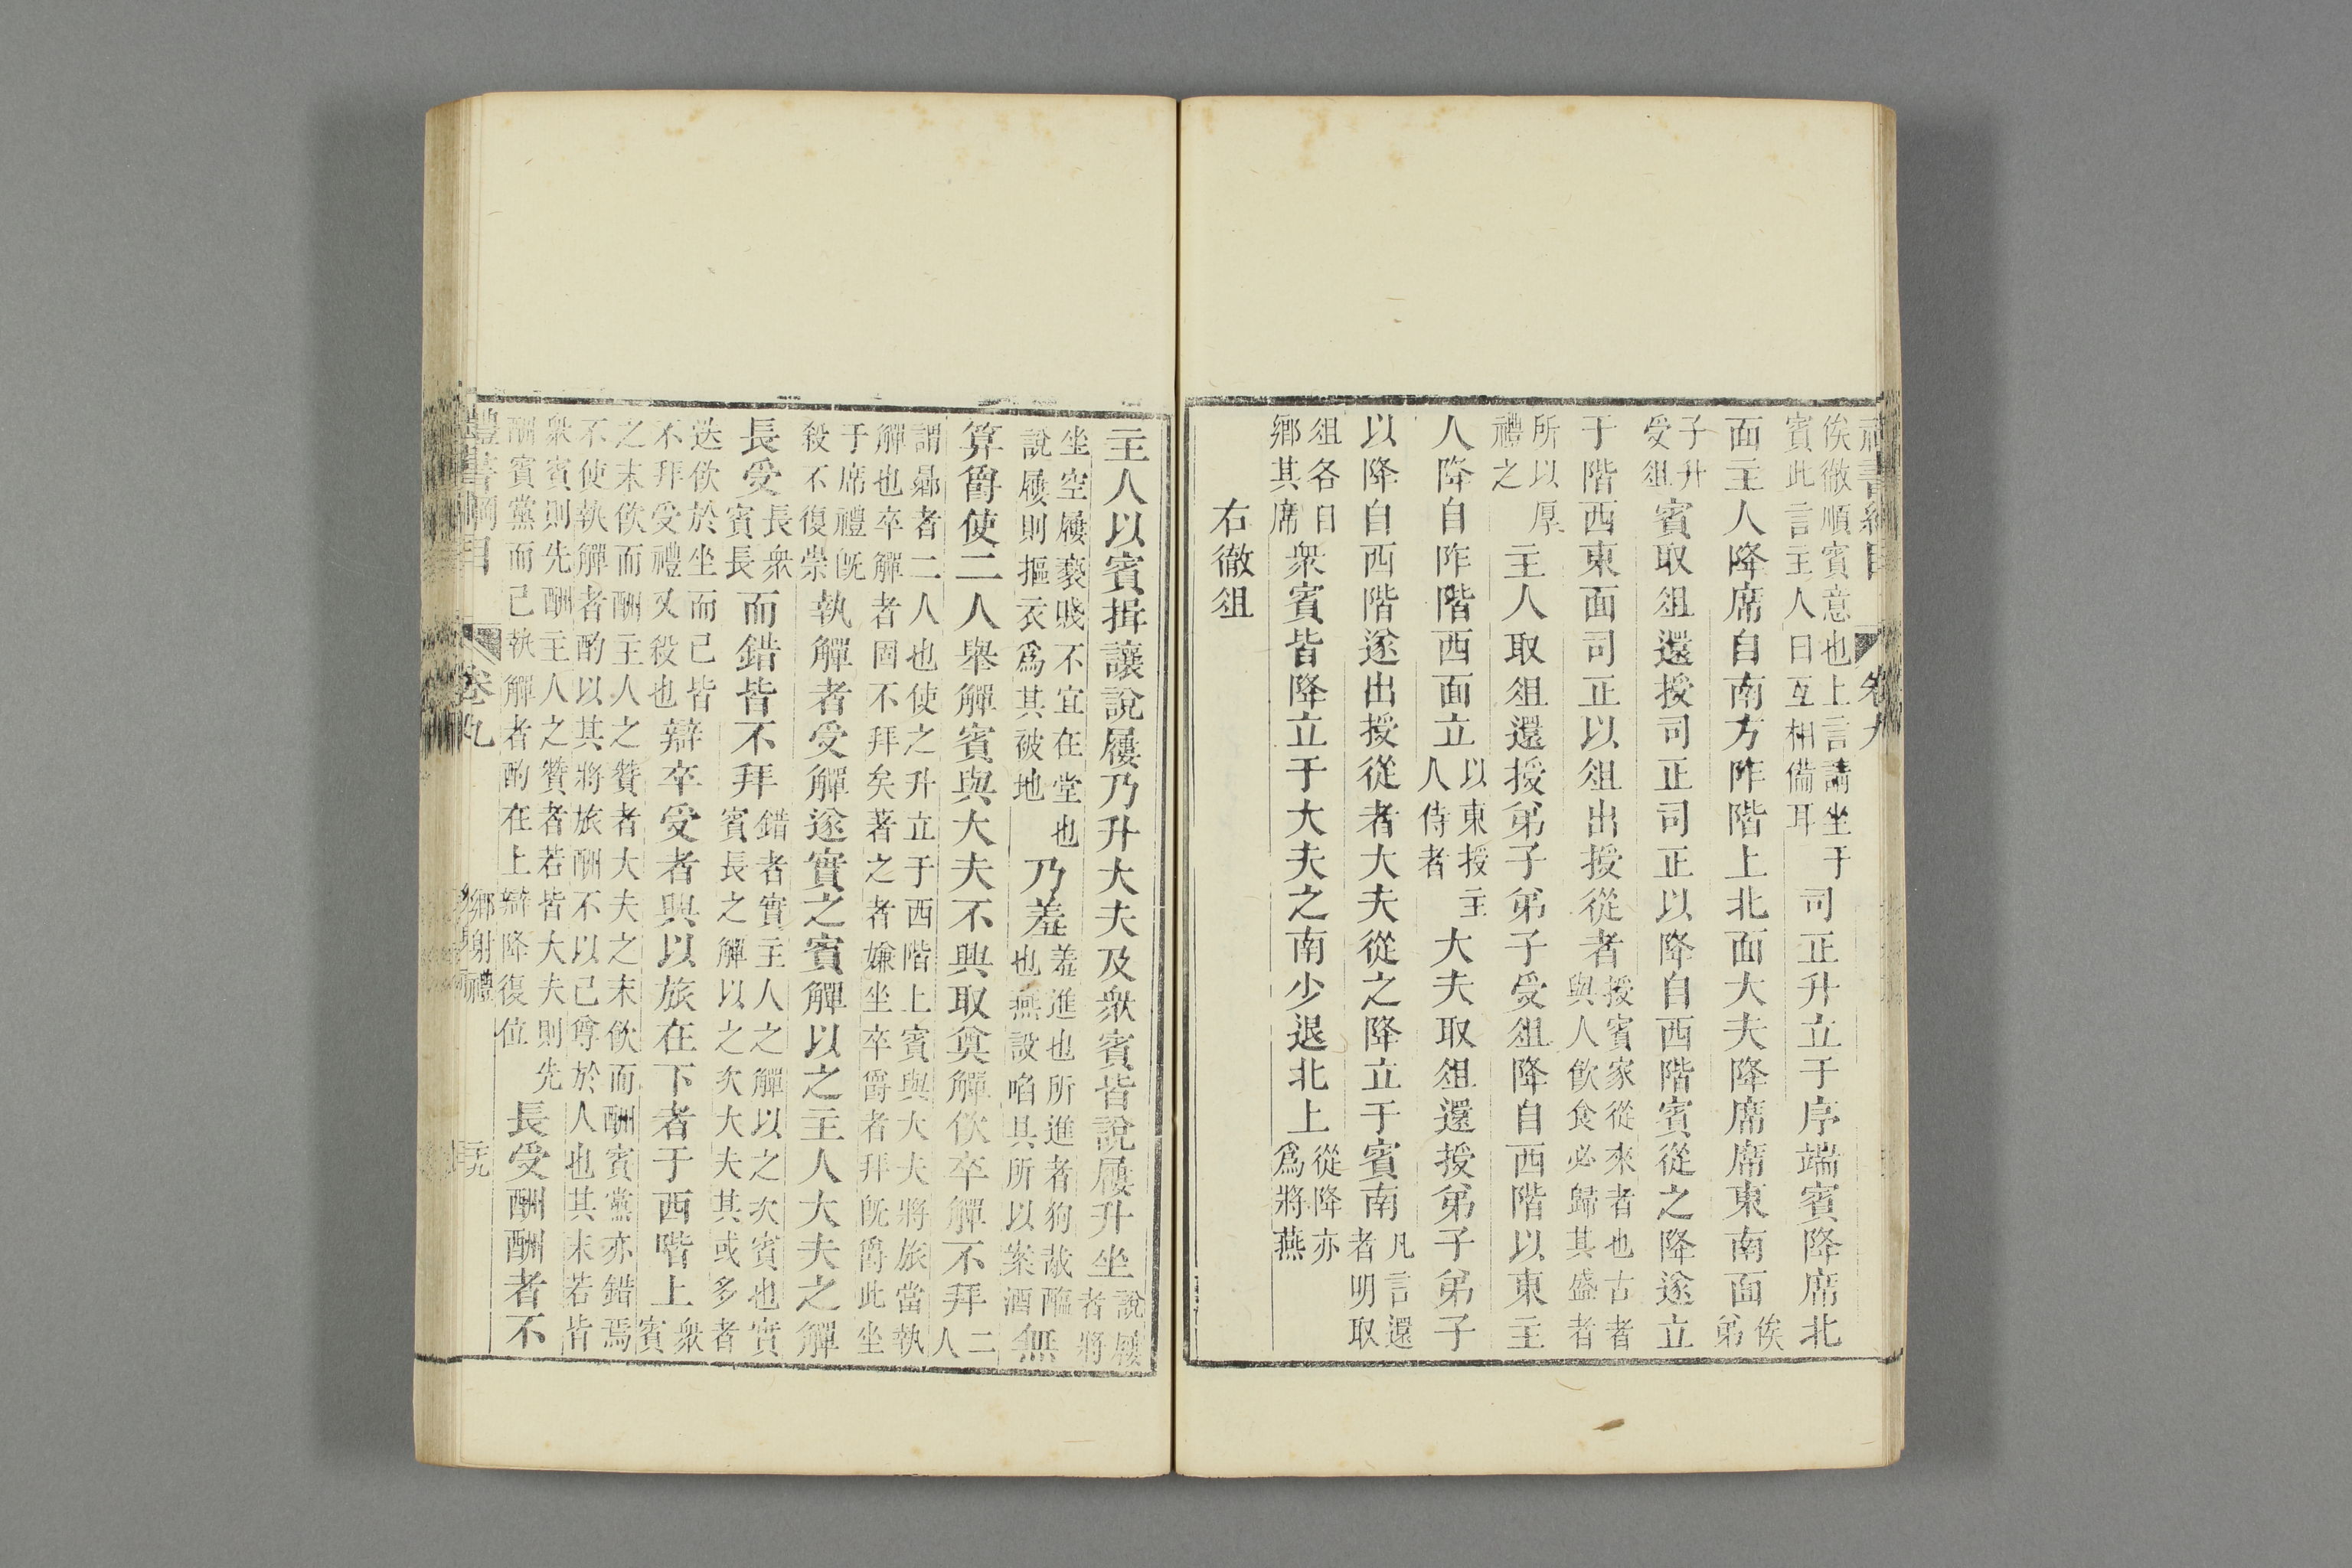 俟徹順賓意也上言請坐于賓此言主人曰互相備耳司正升立于序端賓降席北
面主人降席自南方阼階上北面大夫降席席東南面俟弟
子升受俎賓取俎還授司正司正以降自西階賓從之降遂立
于階西東面司正以俎出授從者授賓家從來者也古者與人飲食必歸其盛者
所以厚禮之主人取俎還授弟子弟子受俎降自西階以東主
人降自阼階西面立以東授主人侍者大夫取俎還授弟子弟子
以降自西階遂出授從者大夫從之降立于賓南凡言還者明取
俎各自鄉其席衆賓皆降立于大夫之南少退北上從降亦爲將燕
右徹俎
主人以賓揖讓說屨乃升大夫及衆賓皆說屨升坐說屨者將
坐空屨褻賤不宜在堂也說屨則摳衣爲其被地乃羞羞進也所進者狗胾醢也燕設啗具所以案酒無
算爵使二人舉觶賓與大夫不興取奠觶飲卒觶不拜二人
謂曏者二人也使之升立于西階上賓與大夫將旅當執觶也卒觶者固不拜矣著之者嫌坐卒爵者拜既爵此坐
于席禮既殺不復崇執觶者受觶遂實之賓觶以之主人大夫之觶
長受長衆賓長而錯皆不拜錯者實主人之觶以之次賓也實賓長之觶以之次大夫其或多者
迭飲於坐而已皆不拜受禮又殺也辯卒受者興以旅在下者于西階上衆賓
之末飲而酬主人之贊者大夫之末飲而酬賓黨亦錯焉不使執觶者酌以其將旅酬不以己尊於人也其末若皆
衆賓則先酬主人之贊者若皆大夫則先酬賓黨而已執觶者酌在上辯降復位長受酬酬者不
禮書綱目 卷九 鄉射禮